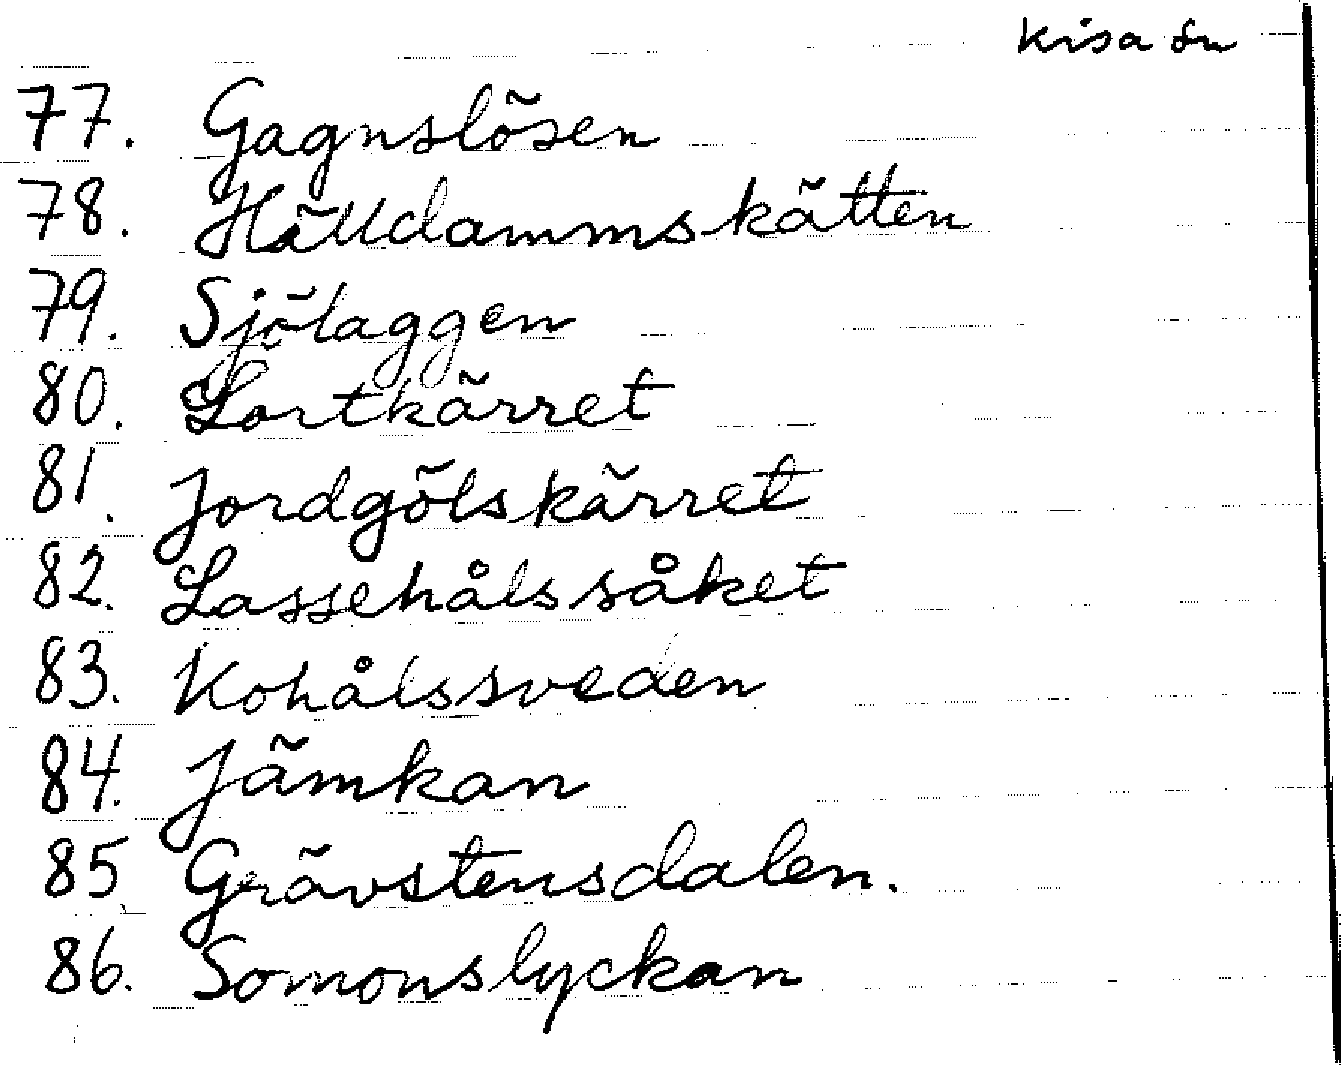 Kisa sn
77. Gagnslösen
78. Hälldammskätten
79. Sjölaggen
80. Lortkärret
81. Jordgölskärret
82. Lassehålssåket
83. Kohålssveden
84. Jämkan
85. Grävstensdalen.
86. Somonslyckan